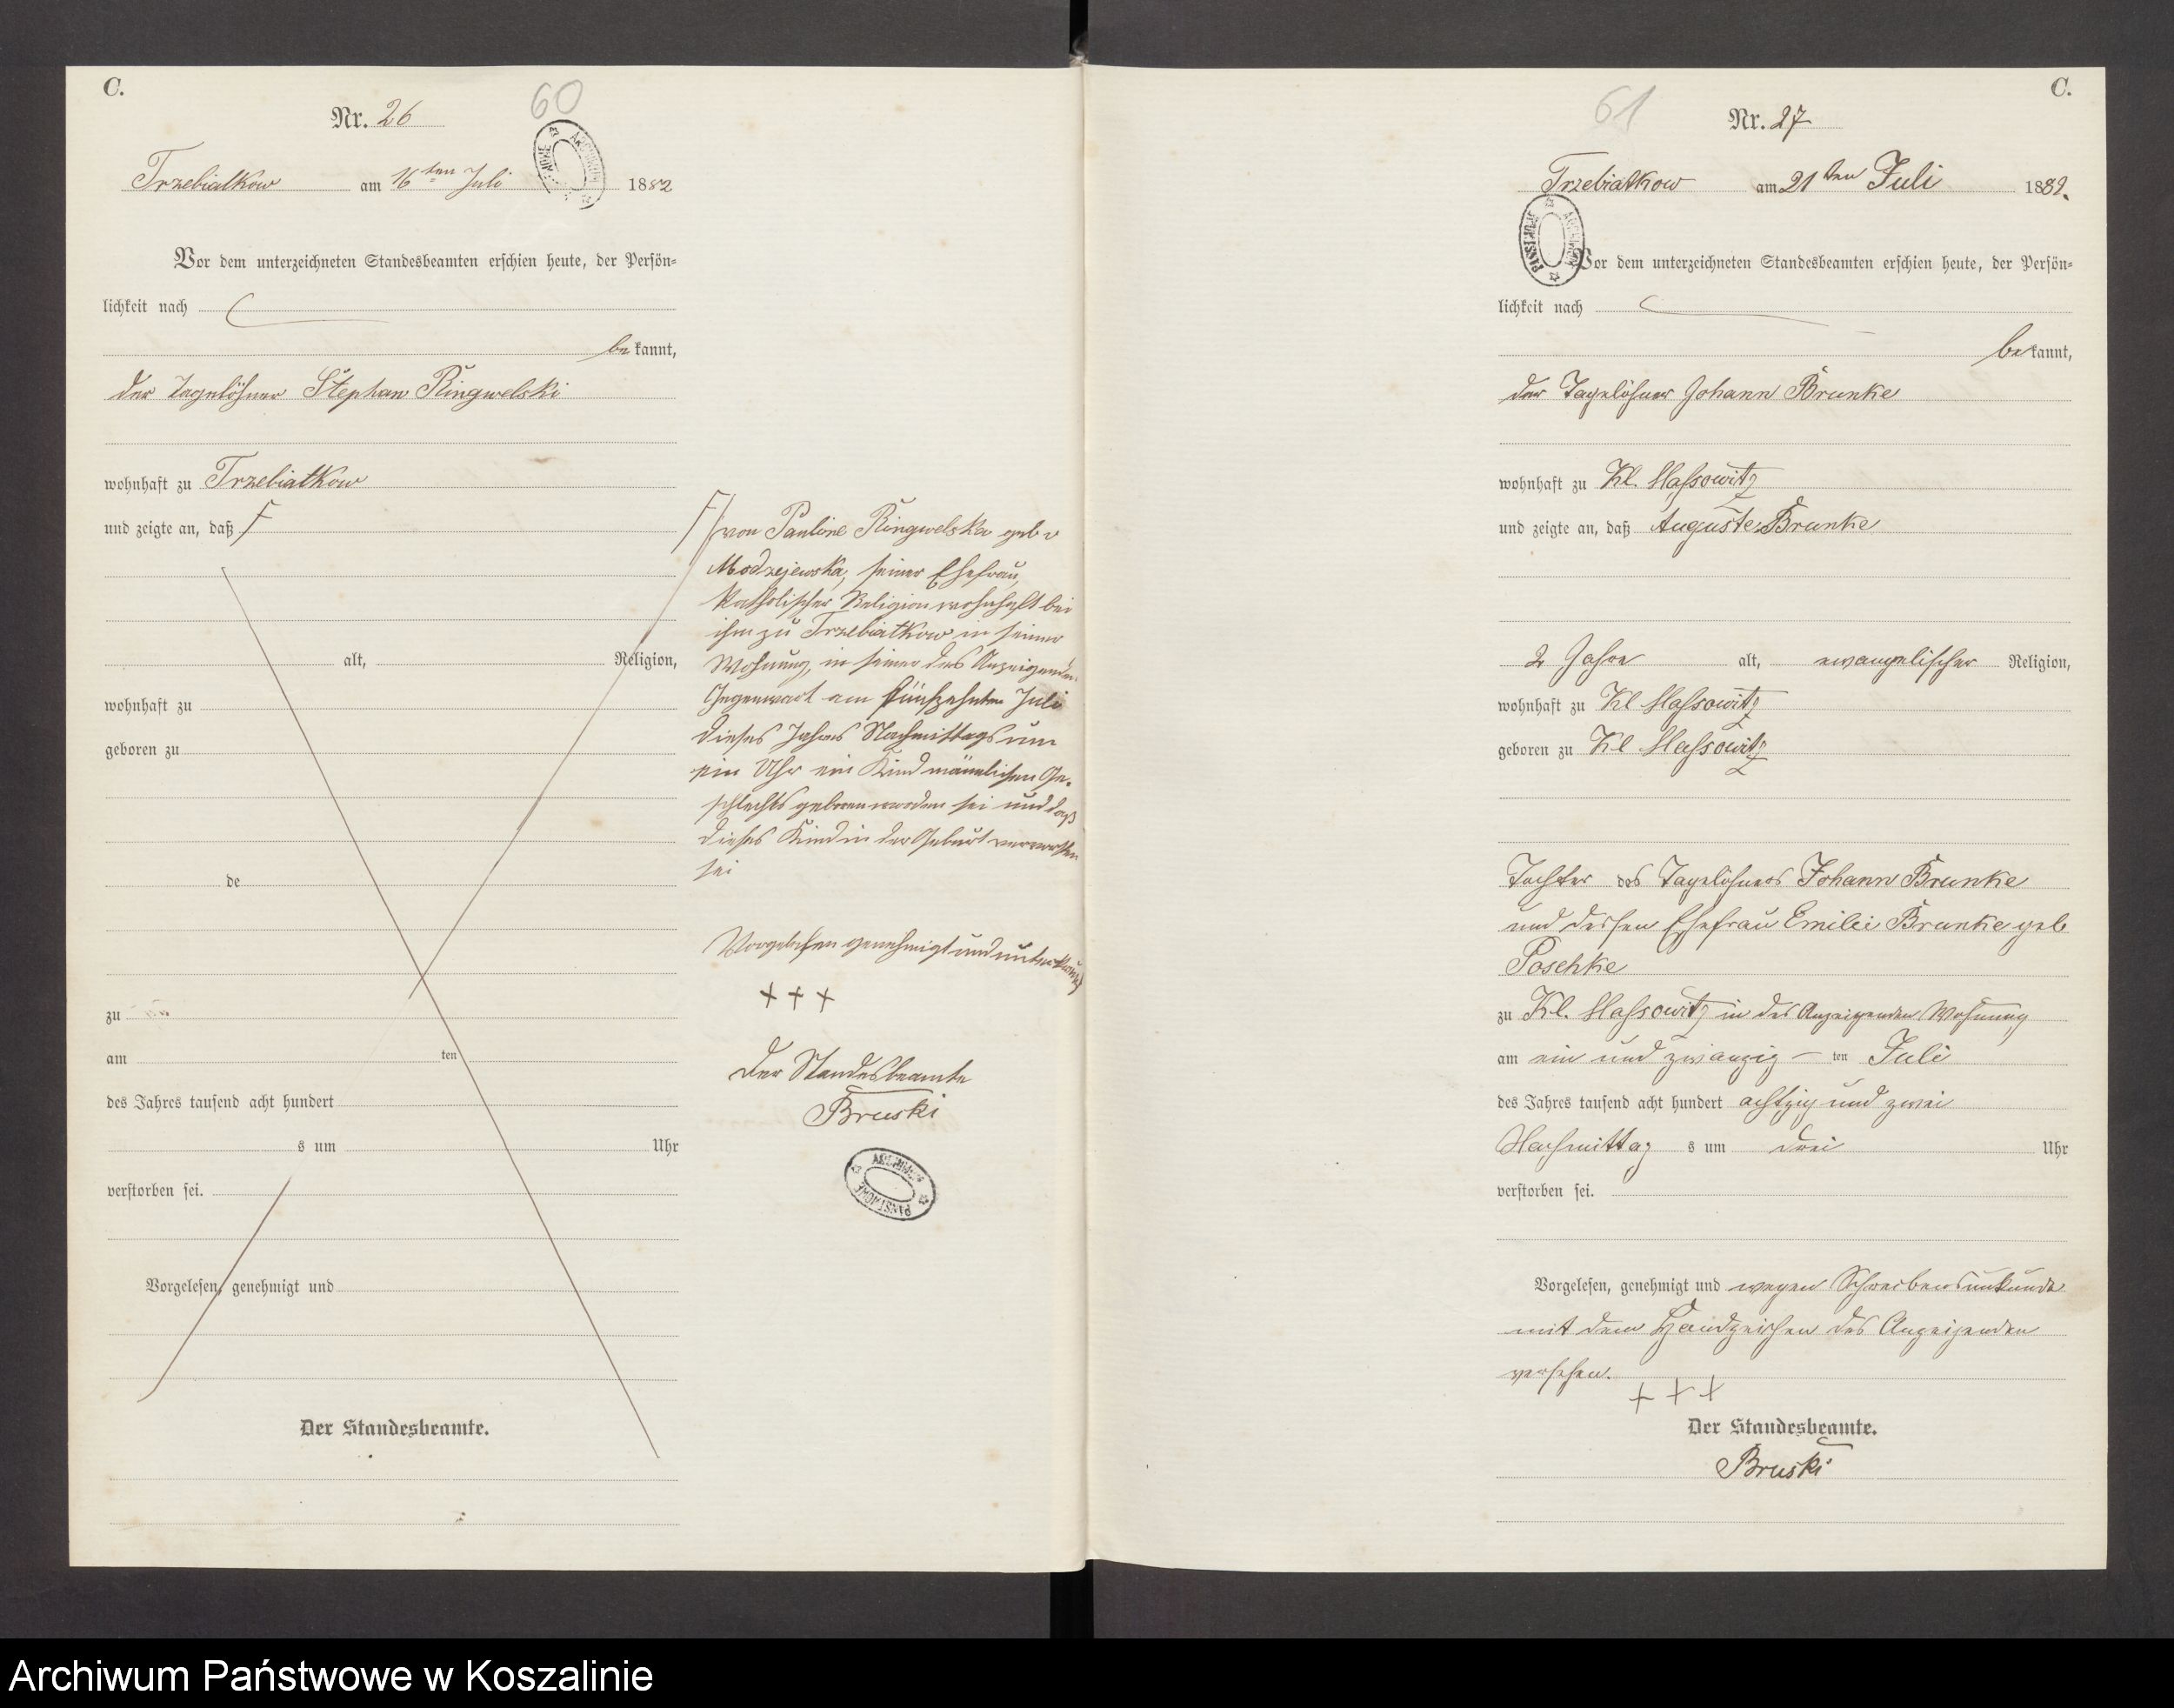 C.
Nr. 26
60
Trzebiatkow am 16ten Juli 1882
Vor dem unterzeichneten Standesbeamten erschien heute, der Persön-
lichkeit nach
bekannt,
der Tagelöhner Stephan Ringwelski
wohnhaft zu Trzebiatkow
und zeigte an, daß
alt, Religion,
wohnhaft zu
geboren zu
de
zu
am ten
des Jahres tausend acht hundert
s um Uhr
verstorben sei.
Vorgelesen, genehmigt und
Der Standesbeamte.
von Pauline Ringwelska geb
Modrzejewska, seiner Ehefrau,
katholischer Religion wohnhaft bei
ihm zu Trzebiatkow in seiner
Wohnung, in seiner des Anzeigenden
Gegenwart am fünfzehnten Juli
dieses Jahres Nachmittags um
ein Uhr ein Kind männlichen Ge-
schlechts geboren worden sei und daß
dieses Kind in der Geburt verstorben
sei
Vorgelesen genehmigt und
+++
Der Standesbeamte
Bruski
ARCHIWUM PAŃSTWOWE
61
C.
Nr. 27
Trzebiatkow am 21ten Juli 1882.
ARCHIWUM PAŃSTWOWE
Vor dem unterzeichneten Standesbeamten erschien heute, der Persön-
lichkeit nach
bekannt,
der Tagelöhner Johann Brunke
wohnhaft zu Kl. Massowitz
und zeigte an, daß Auguste Brunke
2 Jahre alt, evangelischer Religion,
wohnhaft zu Kl Massowitz
geboren zu Kl Massowitz
Tochter des Tagelöhners Johann Brunke
und dessen Ehefrau Emilei Brunke geb
Poschke
zu Kl. Massowitz in des Anzeigenden Wohnung
am ein und zwanzig ten Juli
des Jahres tausend acht hundert achtzig und zwei
Nachmittag s um drei Uhr
verstorben sei.
Vorgelesen, genehmigt und wegen Schreibensunkunde
mit dem Handzeichen des Anzeigenden
versehen.
+++
Der Standesbeamte.
Bruski
Archiwum Państwowe w Koszalinie